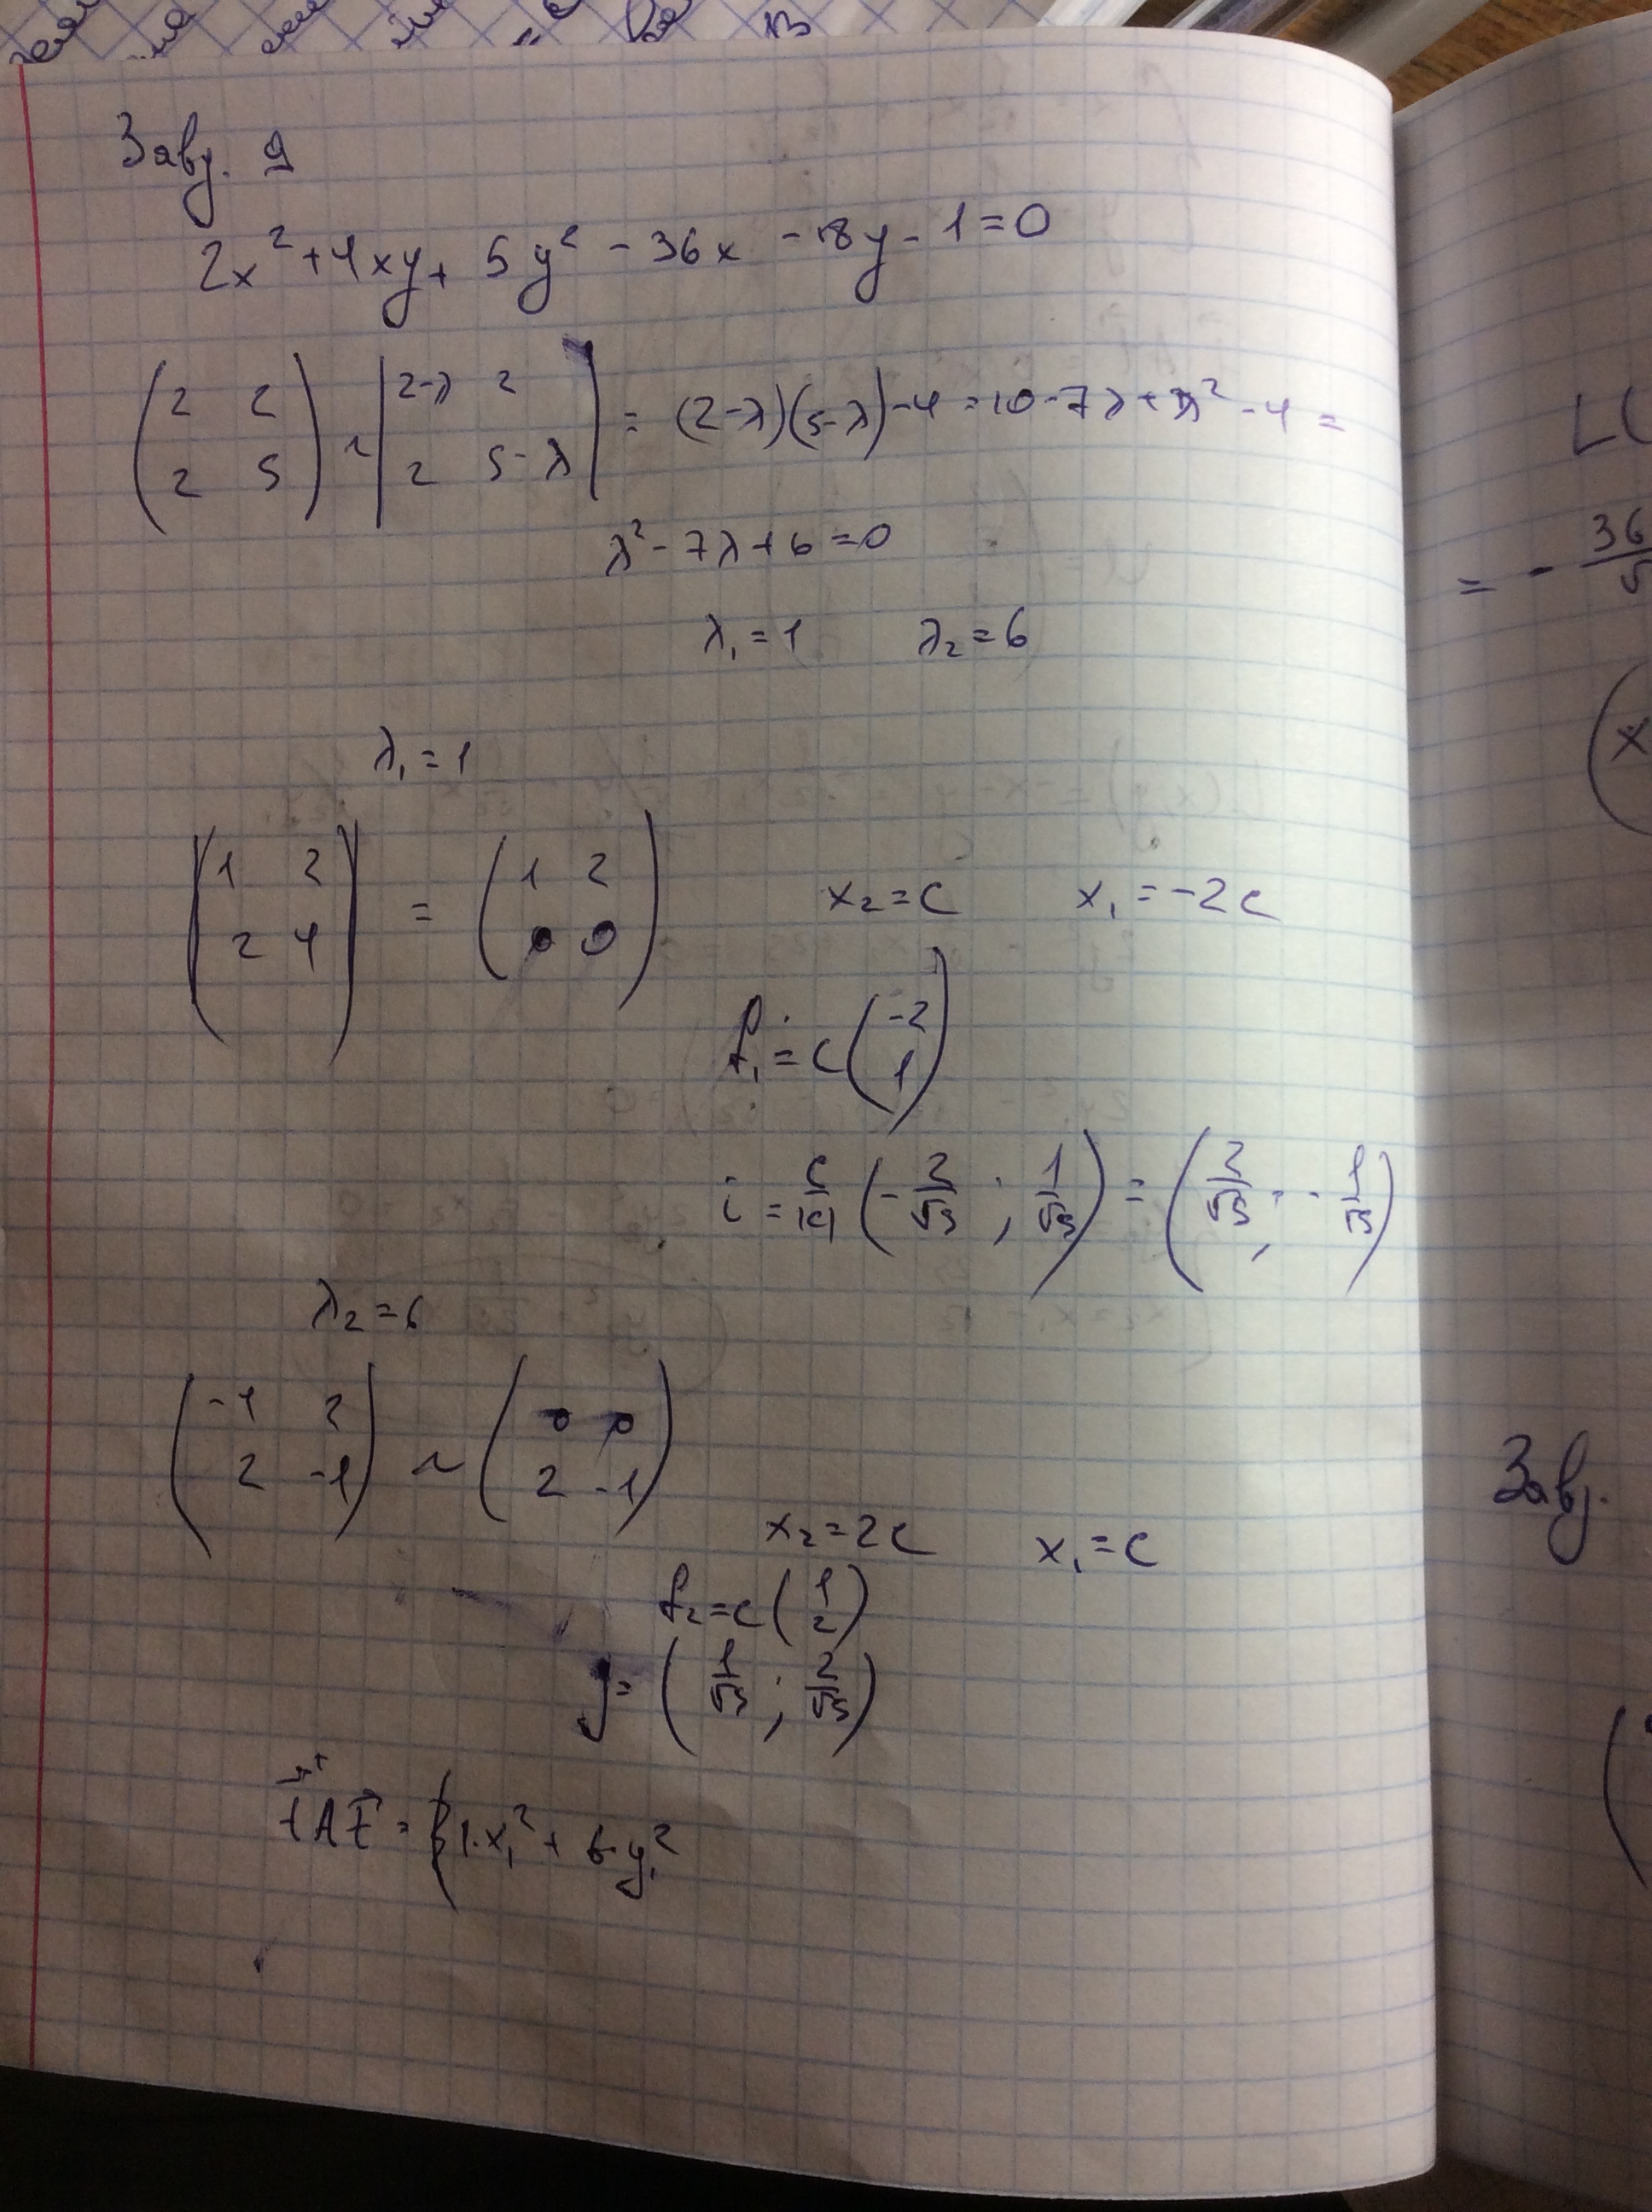 Завд. 9
2x² + 4xy + 5y² - 36x - 18y - 1 = 0
(2 2; 2 5) ~ |2-λ 2; 2 5-λ| = (2-λ)(5-λ) - 4 = 10 - 7λ + λ² - 4 =
λ² - 7λ + 6 = 0
λ₁ = 1 λ₂ = 6
λ₁ = 1
(1 2; 2 4) = (1 2; 0 0) x₂ = c x₁ = -2c
f₁ = c(-2; 1)
i = c/|c| (-2/√5 ; 1/√5) = (2/√5 ; -1/√5)
λ₂ = 6
(-4 2; 2 -1) ~ (0 0; 2 -1)
x₂ = 2c x₁ = c
f₂ = c(1; 2)
j = (1/√5 ; 2/√5)
= 1·x₁² + 6·y₁²
L(
= - 36/5
(x
Завд.